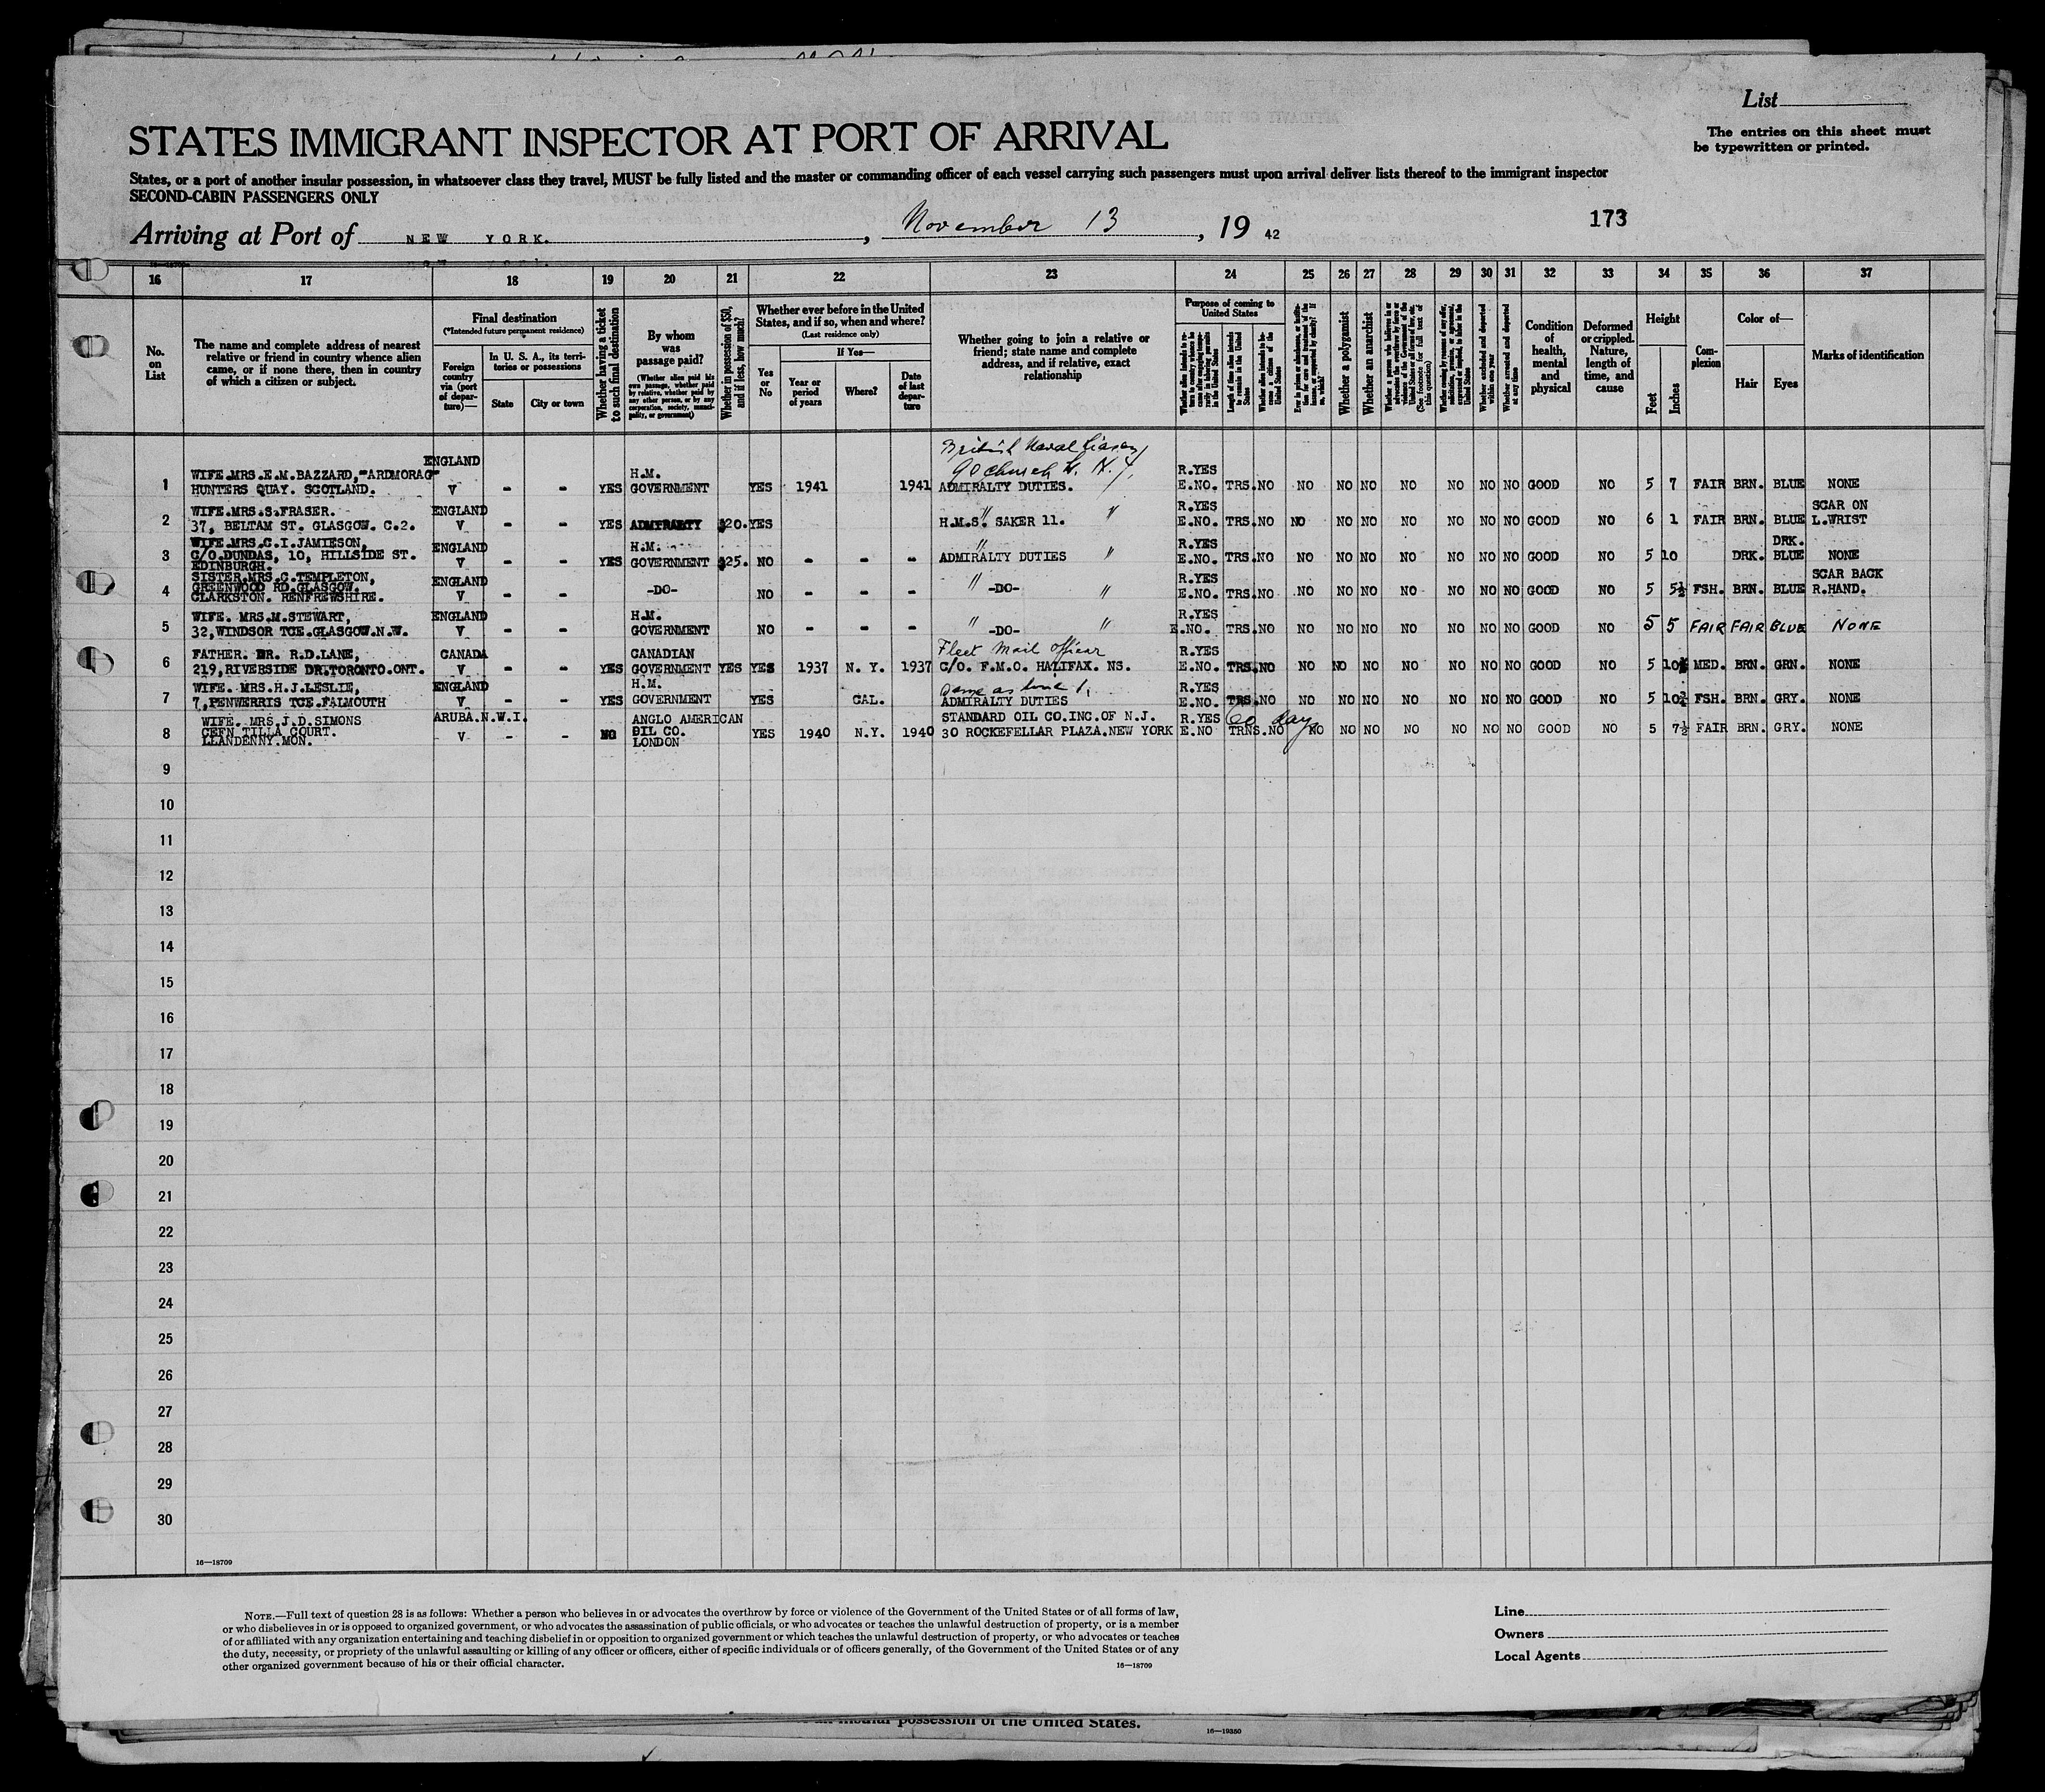 List
The entries on this sheet must
be typewritten or printed.
STATES IMMIGRANT INSPECTOR AT PORT OF ARRIVAL
States, or a port of another insular possession, in whatsoever class they travel, MUST be fully listed and the master or commanding officer of each vessel carrying such passengers must upon arrival deliver lists thereof to the immigrant inspector
SECOND-CABIN PASSENGERS ONLY
Arriving at Port of NEW YORK. , November 13 , 19 42
173
16 17 18 19 20 21 22 23 24 25 26 27 28 29 30 31 32 33 34 35 36 37
No. on List
The name and complete address of nearest
relative or friend in country whence alien
came, or if none there, then in country
of which a citizen or subject.
Final destination
(*Intended future permanent residence)
Foreign country via (port of departure)—
In U. S. A., its territories or possessions
State
City or town
Whether having a ticket to such final destination
By whom was passage paid?
(Whether alien paid his own passage, whether paid by relative, whether paid by any other person, or by any corporation, society, municipality, or government)
Whether in possession of $50, and if less, how much?
Whether ever before in the United States, and if so, when and where?
(Last residence only)
Yes or No
If Yes—
Year or period of years
Where?
Date of last departure
Whether going to join a relative or
friend; state name and complete
address, and if relative, exact
relationship
Purpose of coming to United States
Length of time alien intends to remain in the United States
Whether alien intends to become a citizen of the United States
Whether a polygamist
Whether an anarchist
(See footnote for full text of this question)
Whether excluded and deported within one year
Whether arrested and deported at any time
Condition of health, mental and physical
Deformed or crippled. Nature, length of time, and cause
Height
Feet
Inches
Complexion
Color of—
Hair
Eyes
Marks of identification
British Naval Liaison
90 Church St. N.Y.
1 WIFE.MRS.E.M.BAZZARD,"ARDMORAG" HUNTERS QUAY. SCOTLAND. ENGLAND V - - YES H.M. GOVERNMENT YES 1941 1941 ADMIRALTY DUTIES. " R.YES E.NO. TRS. NO NO NO NO NO NO NO NO GOOD NO 5 7 FAIR BRN. BLUE NONE
2 WIFE.MRS.S.FRASER. 37, BELTAM ST. GLASGOW. C.2. ENGLAND V - - YES ADMIRALTY $20. YES " H.M.S. SAKER 11. " R.YES E.NO. TRS. NO NO NO NO NO NO NO NO GOOD NO 6 1 FAIR BRN. BLUE SCAR ON L.WRIST
3 WIFE.MRS.C.I.JAMIESON, C/O.DUNDAS, 10, HILLSIDE ST. EDINBURGH. ENGLAND V - - YES H.M. GOVERNMENT $25. NO - - - " ADMIRALTY DUTIES " R.YES E.NO. TRS. NO NO NO NO NO NO NO NO GOOD NO 5 10 DRK. DRK. BLUE NONE
4 SISTER.MRS.C.TEMPLETON, GREENWOOD RD.GLASGOW. CLARKSTON. RENFREWSHIRE. ENGLAND V - - -DO- NO - - - " -DO- " R.YES E.NO. TRS. NO NO NO NO NO NO NO NO GOOD NO 5 5½ FSH. BRN. BLUE SCAR BACK R.HAND.
5 WIFE. MRS.M.STEWART, 32,WINDSOR TCE.GLASGOW.N.W. ENGLAND V - - H.M. GOVERNMENT NO - - - " -DO- " R.YES E.NO. TRS. NO NO NO NO NO NO NO NO GOOD NO 5 5 FAIR FAIR BLUE NONE
6 FATHER. DR. R.D.LANE, 219,RIVERSIDE DR.TORONTO.ONT. CANADA V - - YES CANADIAN GOVERNMENT YES YES 1937 N. Y. 1937 Fleet Mail Officer C/O. F.M.O. HALIFAX. NS. R.YES E.NO. TRS. NO NO NO NO NO NO NO NO GOOD NO 5 10 MED. BRN. GRN. NONE
7 WIFE. MRS.H.J.LESLIE, 7,PENWERRIS TCE.FALMOUTH ENGLAND V - - YES H.M. GOVERNMENT YES CAL. Same as line 1, ADMIRALTY DUTIES R.YES E.NO. TRS. NO NO NO NO NO NO NO NO GOOD NO 5 10¾ FSH. BRN. GRY. NONE
8 WIFE. MRS.J.D.SIMONS CEFN TILLA COURT. LLANDENNY.MON. ARUBA.N.W.I. V - - NO ANGLO AMERICAN OIL CO. LONDON YES 1940 N.Y. 1940 STANDARD OIL CO.INC.OF N.J. 30 ROCKEFELLAR PLAZA.NEW YORK R.YES E.NO 60 days TRNS. NO NO NO NO NO NO NO NO GOOD NO 5 7½ FAIR BRN. GRY. NONE
9
10
11
12
13
14
15
16
17
18
19
20
21
22
23
24
25
26
27
28
29
30
16—18709
NOTE.—Full text of question 28 is as follows: Whether a person who believes in or advocates the overthrow by force or violence of the Government of the United States or of all forms of law,
or who disbelieves in or is opposed to organized government, or who advocates the assassination of public officials, or who advocates or teaches the unlawful destruction of property, or is a member
of or affiliated with any organization entertaining and teaching disbelief in or opposition to organized government or which teaches the unlawful destruction of property, or who advocates or teaches
the duty, necessity, or propriety of the unlawful assaulting or killing of any officer or officers, either of specific individuals or of officers generally, of the Government of the United States or of any
other organized government because of his or their official character.
16—18709
Line
Owners
Local Agents
insular possession of the United States.
16—19350